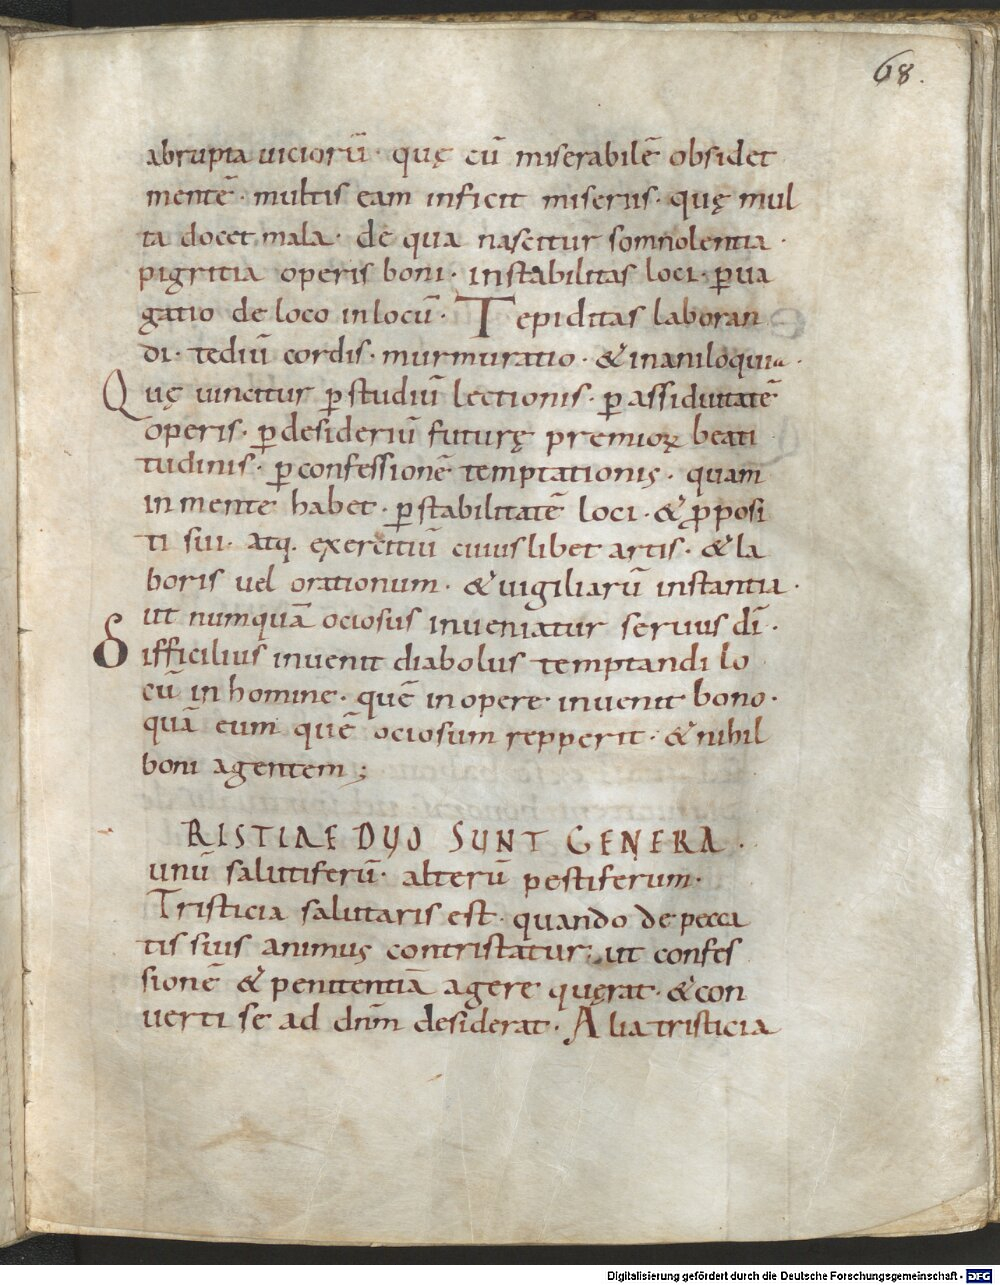 68.
abrupta uiciorū· quę cū miserabilē obsidet
mentē· multis eam inficit miseriis· quę mul
ta docet mala· de qua nascitur somnolentia·
pigritia operis boni· instabilitas loci· ꝑua
gatio de loco in locū· Tepiditas laboran
di· tediū cordis· murmuratio· & inaniloquia·
Quę uincitur ꝑ studiū lectionis· ꝑ assiduitatē
operis· ꝑ desideriū futurę premioꝝ beati
tudinis· ꝑ confessionē temptationis· quam
in mente habet· ꝑ stabilitatē loci· & ꝓposi
ti sui· atq. exercitiū cuius libet artis· & la
boris uel orationum· & uigiliarū instantia·
ut numquā ociosus inueniatur seruus dī·
difficilius inuenit diabolus temptandi lo
cū in homine· quē in opere inuenit bono·
quā eum quē ociosum repperit· & nihil
boni agentem;
RISTIAE DUO SUNT GENERA·
unū salutiferū· alterū pestiferum·
Tristicia salutaris est· quando de pecca
tis suis animus contristatur· ut confes
sionē & penitentiā agere quęrat· & con
uerti se ad dn̄m desiderat· Alia tristicia
Digitalisierung gefördert durch die Deutsche Forschungsgemeinschaft - DFG